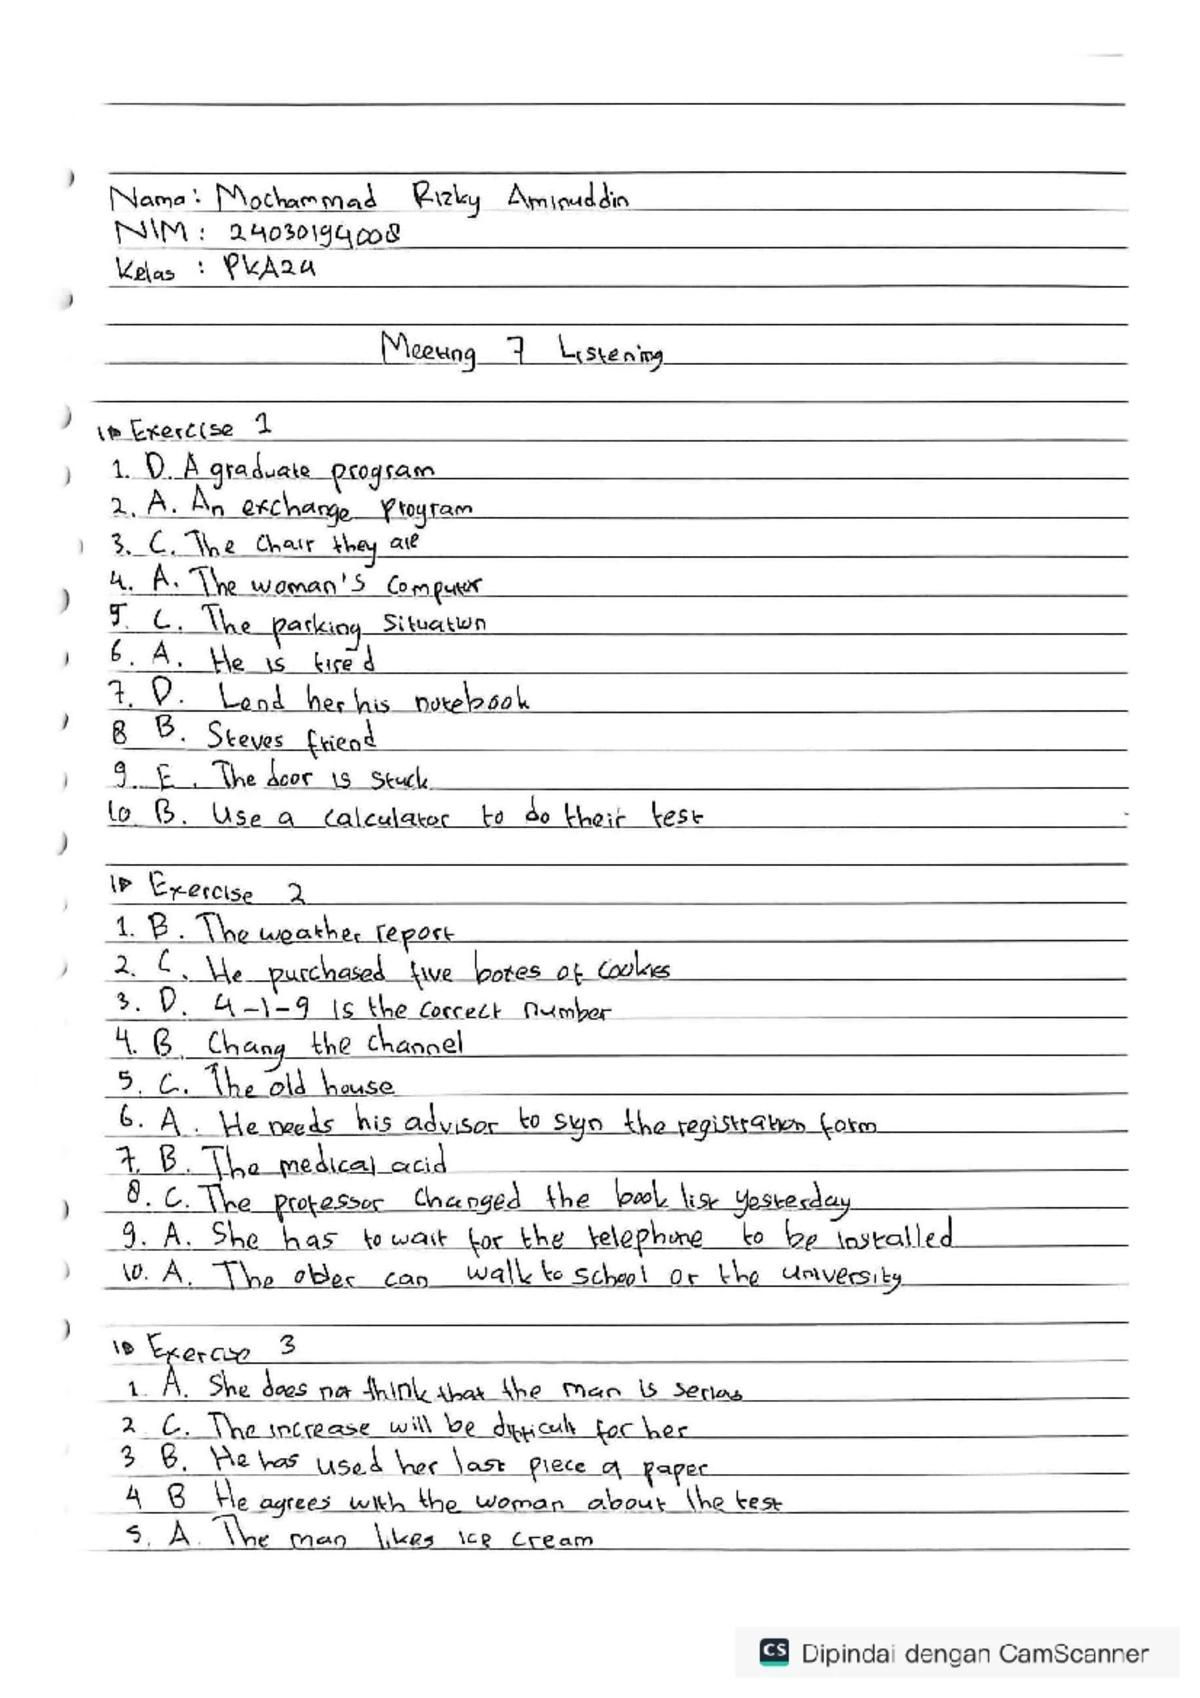 Nama: Mochammad Rizky Aminuddin
NIM: 24030194008
Kelas: PKA24
Meeting 7 Listening
Exercise 1
1. D. A graduate program
2. A. An exchange program
3. C. The Chair they are
4. A. The woman's Computer
5. C. The parking Situation
6. A. He is tired
7. D. Lend her his notebook
8 B. Steves friend
9. E. The door is stuck
10 B. Use a calculator to do their test
Exercise 2
1. B. The weather report
2. C. He purchased five boxes of cookies
3. D. 4-1-9 is the correct number
4. B. Chang the channel
5. C. The old house
6. A. He needs his advisor to sign the registration form
7. B. The medical acid
8. C. The professor changed the book list yesterday
9. A. She has to wait for the telephone to be installed
10. A. The older can walk to school or the university
Exercise 3
1. A. She does not think that the man is serius
2 C. The increase will be difficult for her
3 B. He has used her last piece of paper
4 B He agrees with the woman about the test
5. A. The man likes ice cream
CS Dipindai dengan CamScanner